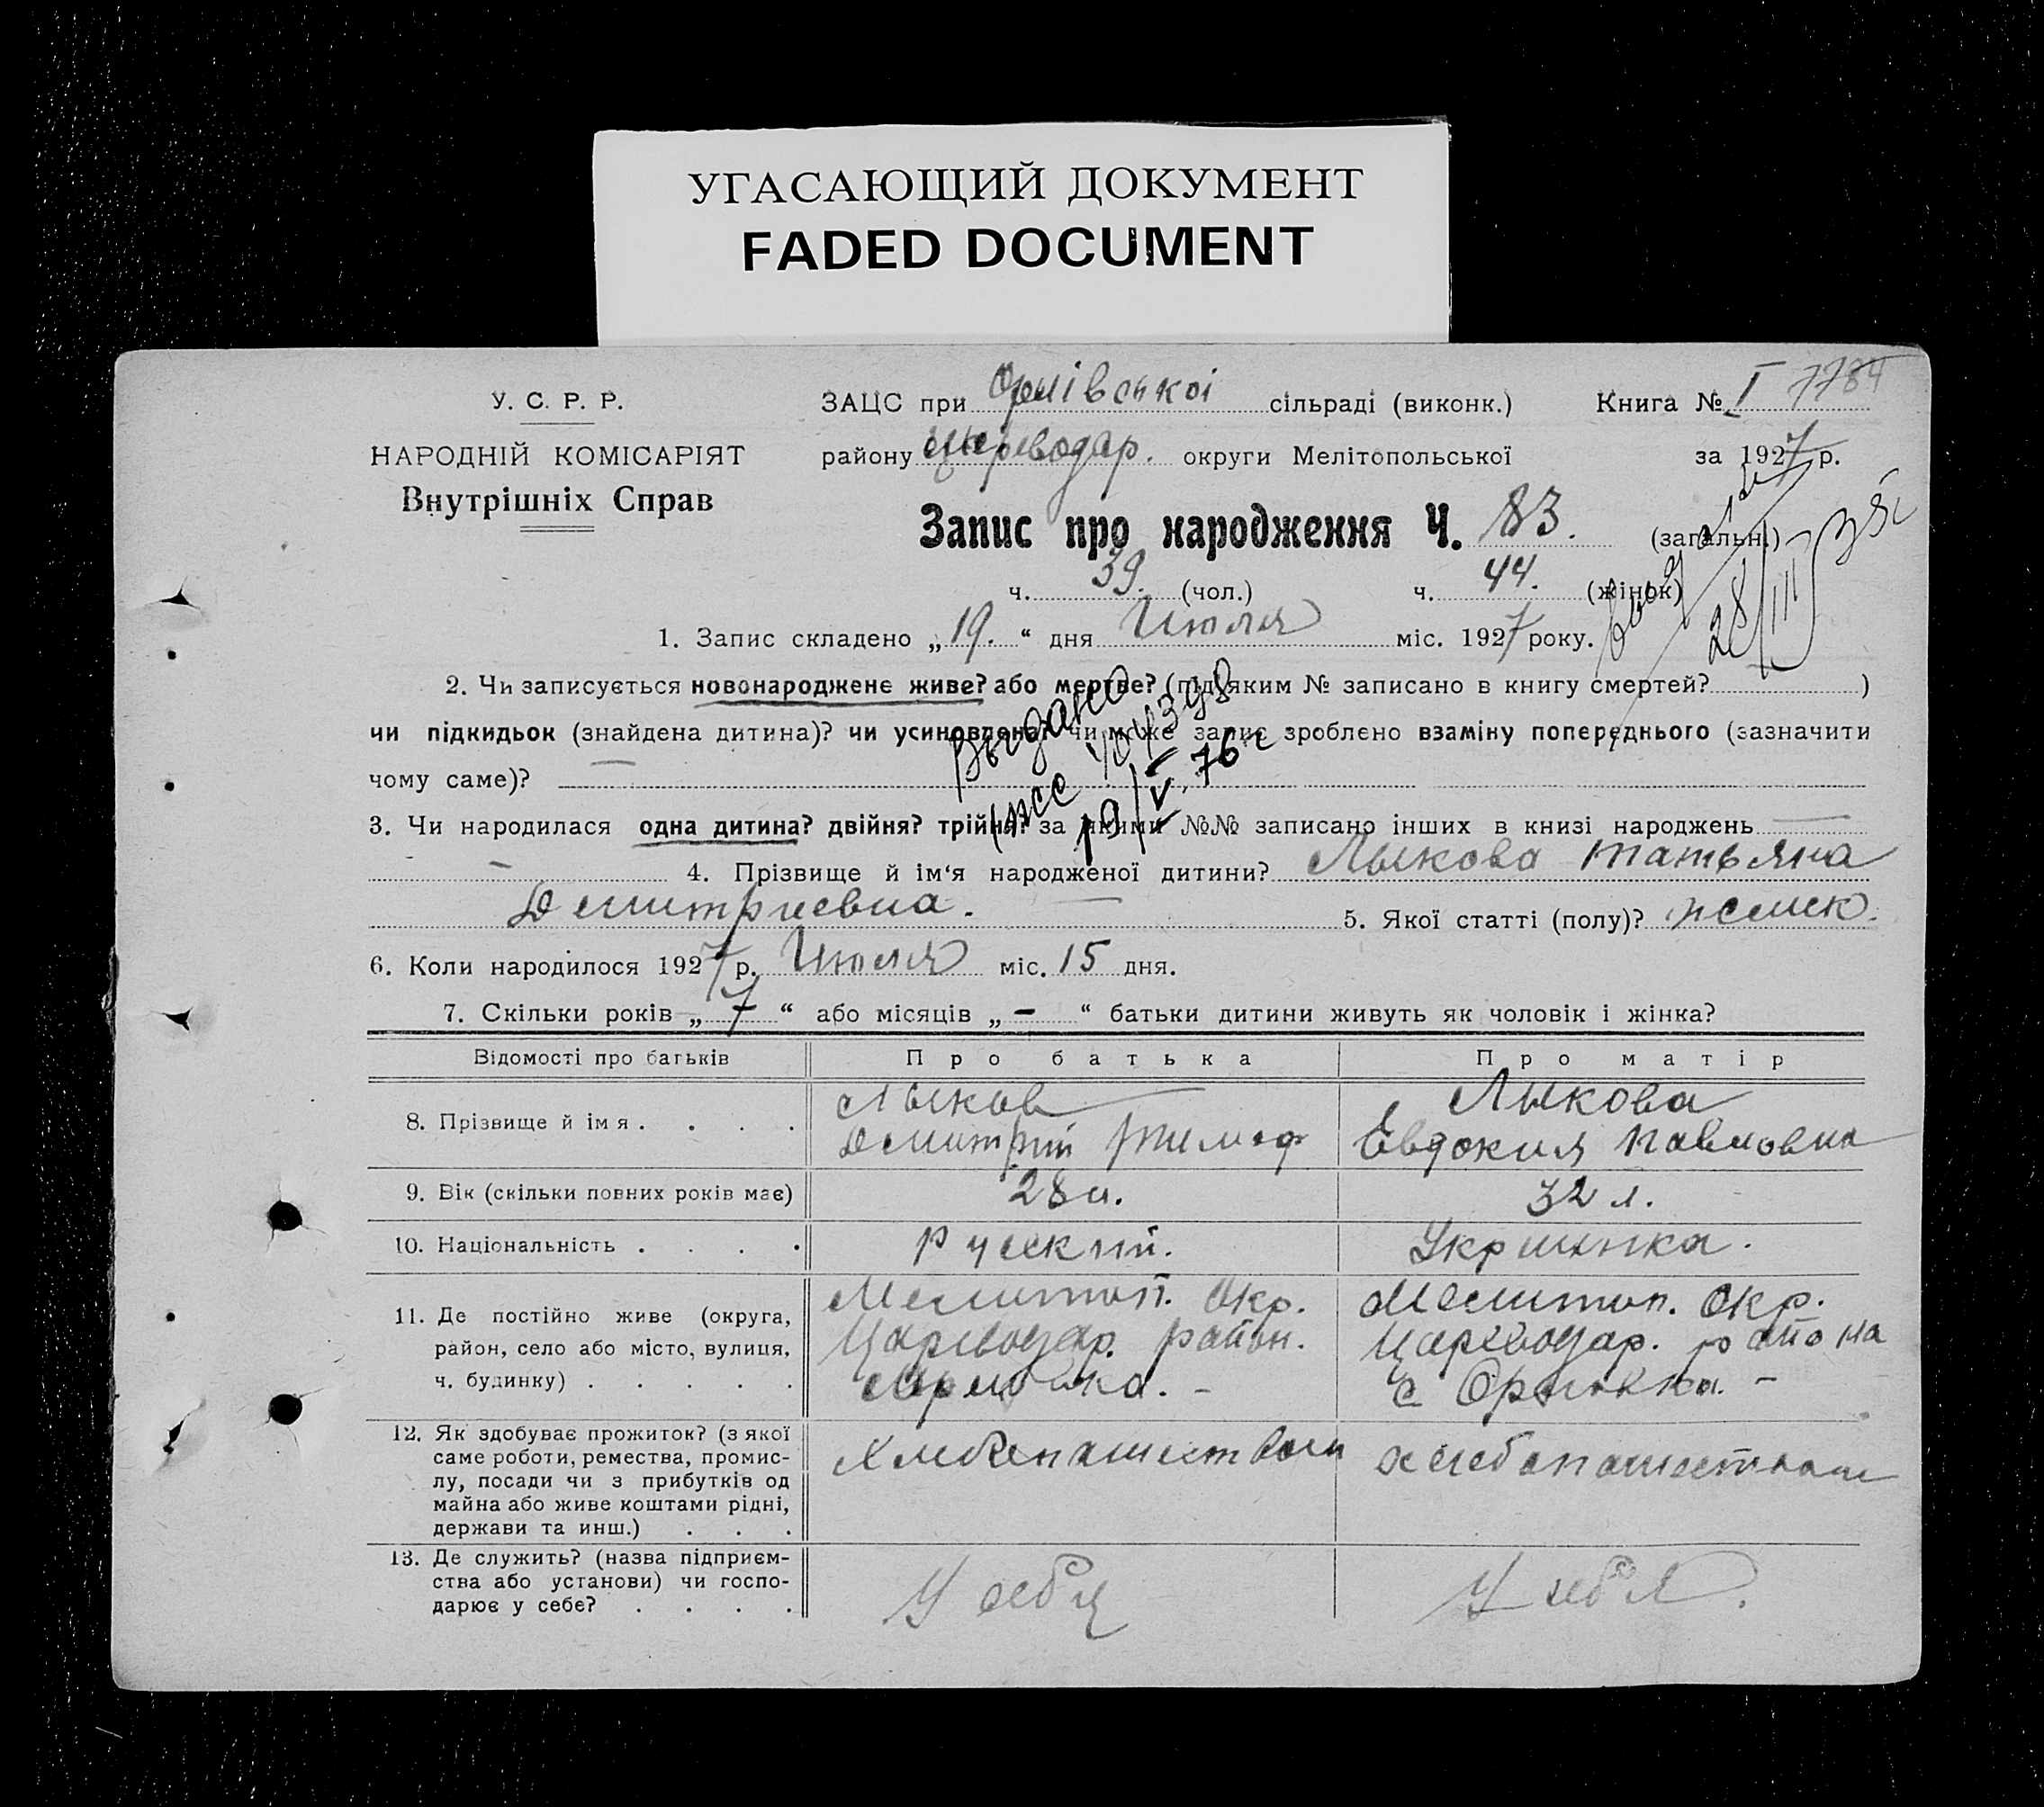 УГАСАЮЩИЙ ДОКУМЕНТ
FADED DOCUMENT
У. С. Р. Р.
НАРОДНІЙ КОМІСАРІЯТ
Внутрішніх Справ
ЗАЦС при Орлівської сільраді (виконк.)
Книга № I 7784
району Цареводар. округи Мелітопольської
за 1927 р.
Запис про народження Ч. 83. (загальн.)
ч. 39. (чол.) ч. 44. (жінок)
28/III 35
1. Запис складено „19.“ дня Июля міс. 1927 року.
2. Чи записується новонароджене живе? або мертве? (під яким № записано в книгу смертей? )
чи підкидьок (знайдена дитина)? чи усиновлена? чи може запис зроблено взаміну попереднього (зазначити
чому саме)? —
Выдано
104398
19/V. 76 г
3. Чи народилася одна дитина? двійня? трійня? за якими №№ записано інших в книзі народжень —
— 4. Прізвище й ім‘я народженої дитини? Лыкова Татьяна
Демитриевна. — 5. Якої статті (полу)? женск.
6. Коли народилося 1927 р. Июля міс. 15 дня.
7. Скільки років „7“ або місяців „–“ батьки дитини живуть як чоловік і жінка?
Відомості про батьків Про батька Про матір
8. Прізвище й імя . . . .
Лыков
Демитрій Тимоф
Лыкова
Евдокия Павловна
9. Вік (скільки повних років має) 28 л. 32 л.
10. Національність . . . . Русский. Украинка.
11. Де постійно живе (округа,
район, село або місто, вулиця,
ч. будинку) . . . . .
Мелитоп. Окр.
Цареводар. район.
с Орловка. –
Мелитоп. Окр.
Цареводар. района
с Орловка. –
12. Як здобуває прожиток? (з якої
саме роботи, ремества, промис-
лу, посади чи з прибутків од
майна або живе коштами рідні,
держави та инш.) . . .
Хлебопашеством
хлебопашеством
13. Де служить? (назва підприєм-
ства або установи) чи госпо-
дарює у себе? . . . .
У себя
У себя.